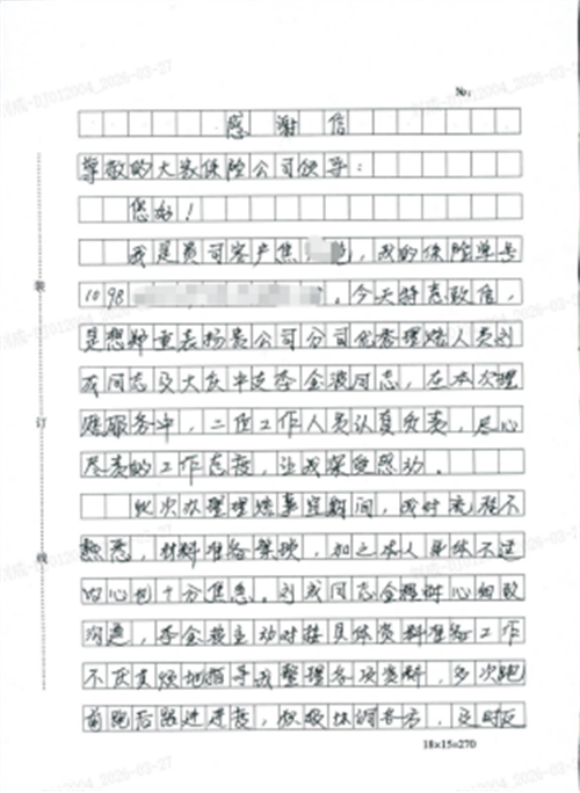 №:
感谢信
尊敬的大家保险公司领导：
您好！
我是贵司客户焦 艳，我的保险单号
1098 。今天特意致信，
是想郑重表扬贵公司分司优秀理赔人员刘
成同志及大庆中支李金波同志，在本次理
赔服务中，二位工作人员认真负责，尽心
尽责的工作态度，让我深受感动。
此次办理理赔事宜期间，我对流程不
熟悉，材料准备繁琐，加之本人身体不适
内心也十分焦急。刘成同志全程耐心细致
沟通，李金波主动对接具体资料准备工作
不厌其烦地指导我整理各项资料，多次跑
前跑后跟进进度，积极协调各方，及时反
装
订
线
18×15=270